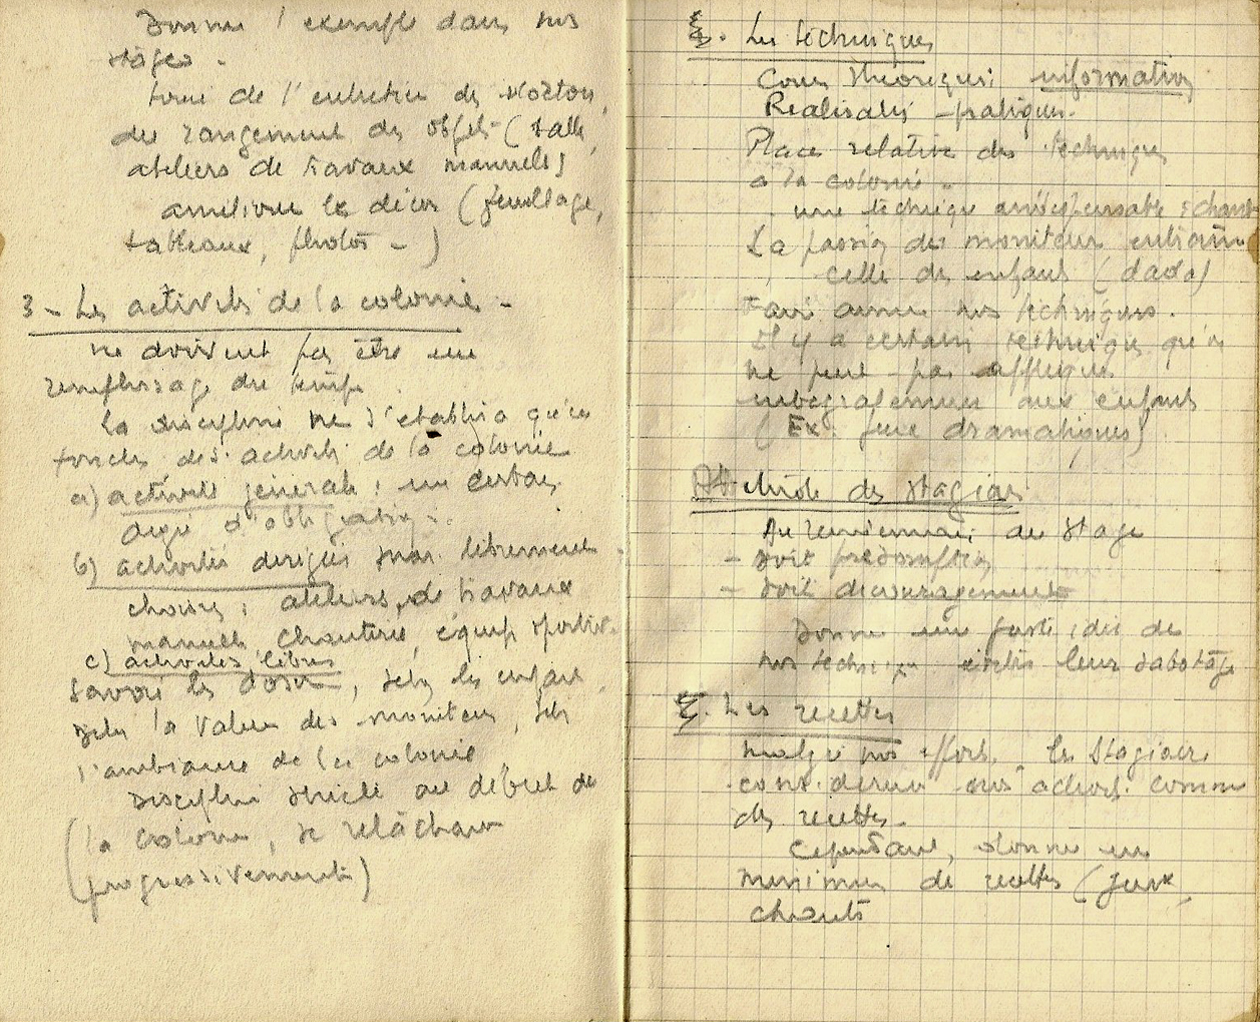 Donner l'exemple dans nos
stages.
tenir de l'entretien des
du rangement des objets (salle,
ateliers de travaux manuels)
améliorer le décor (feuillage,
tableaux, photos - )
3 - Les activités de la colonie -
ne doivent pas être un
remplissage du temps.
la discipline ne s'établira qu'en
fonction des activités de la colonie
a) activité générale : un certain
degré d'obligation.
b) activités dirigées mais librement
choisies : ateliers de travaux
manuels, chanterie, équip. sportive.
c) activités libres
Savoir les doser, selon les enfants,
selon la valeur des moniteurs, selon
l'ambiance de la colonie
Discipline stricte au début de
(la colonie, se relâchant
progressivement)
Les techniques
Cours théoriques : information
Réalisation pratiques.
Place relative des techniques
à la colonie.
une technique indispensable : chant
La passion du moniteur entraîne
celle des enfants (dada)
Faire aimer nos techniques.
Il y a certaines techniques qu'on
ne peut pas appliquer
intégralement aux enfants
(Ex. jeux dramatiques)
des stagiaires
du stage
- soit présomption
- soit découragement
Donner une juste idée de
nos techniques évite leur sabotage
Les recettes
malgré nos efforts, les stagiaires
considèrent nos activités comme
des recettes.
Cependant, donner un
minimum de recettes (jeux,
chants